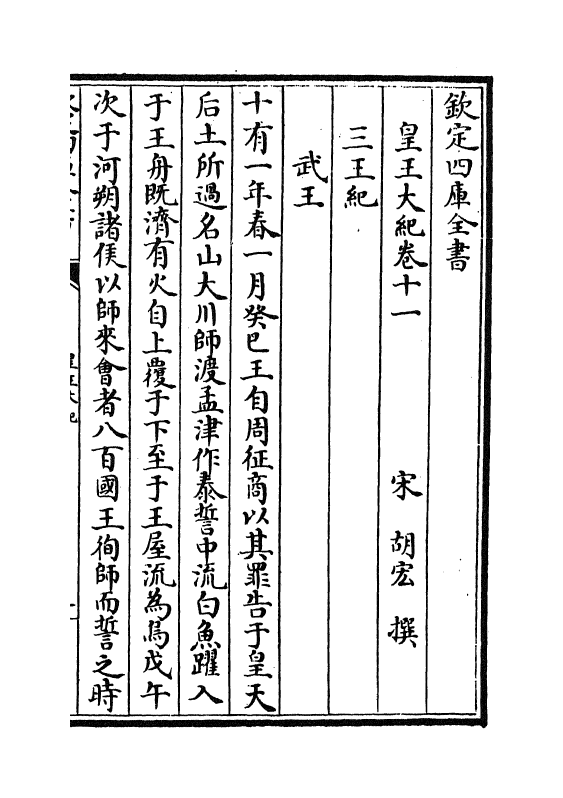 欽定四庫全書
皇王大紀卷十一　宋　胡宏　撰
三王紀
武王
十有一年春一月癸巳王自周征商以其罪告于皇天
后土所過名山大川師渡孟津作泰誓中流白魚躍入
于王舟既濟有火自上覆于下至于王屋流為烏戊午
次于河朔諸侯以師來會者八百國王徇師而誓之時